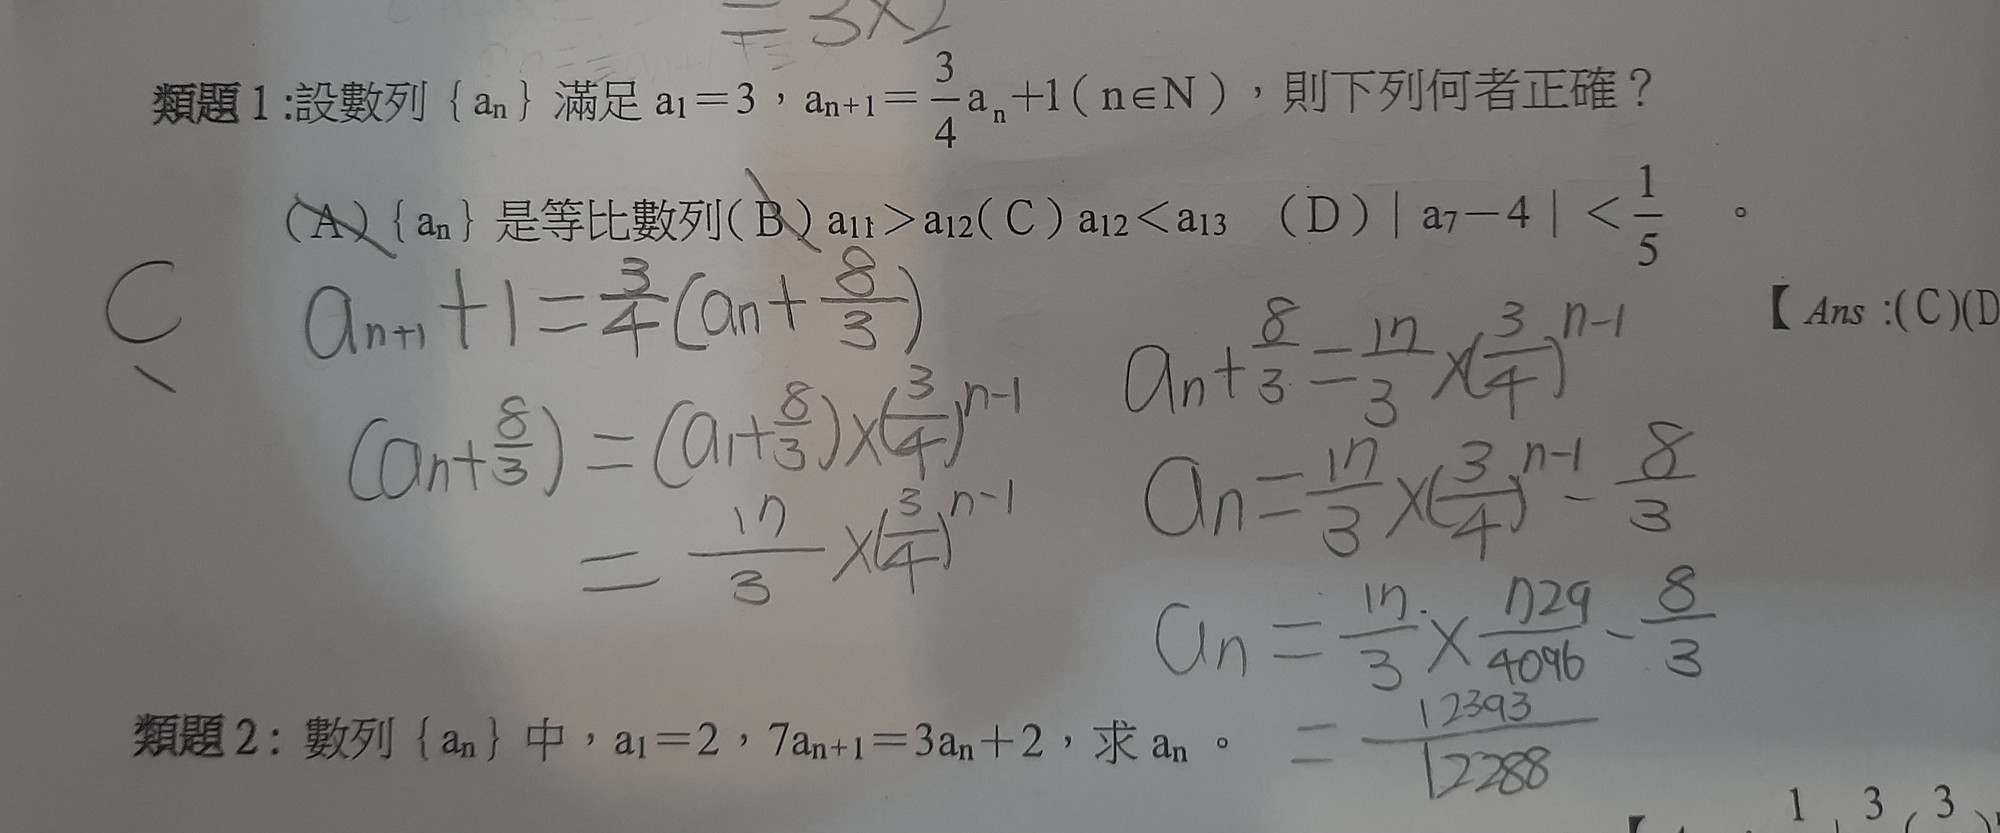 =3×2
類題1:設數列{aₙ}滿足 a₁=3，aₙ₊₁=3/4 aₙ+1(n∈N)，則下列何者正確？
(A){aₙ}是等比數列(B)a₁₁>a₁₂(C)a₁₂<a₁₃ (D)|a₇-4|<1/5 。
C、
【Ans:(C)(D
aₙ₊₁+1=3/4(aₙ+8/3)
(aₙ+8/3)=(a₁+8/3)×(3/4)ⁿ⁻¹
=17/3×(3/4)ⁿ⁻¹
aₙ+8/3=17/3×(3/4)ⁿ⁻¹
aₙ=17/3×(3/4)ⁿ⁻¹-8/3
aₙ=17/3×729/4096-8/3
=12393/12288
類題2:數列{aₙ}中，a₁=2，7aₙ₊₁=3aₙ+2，求 aₙ。